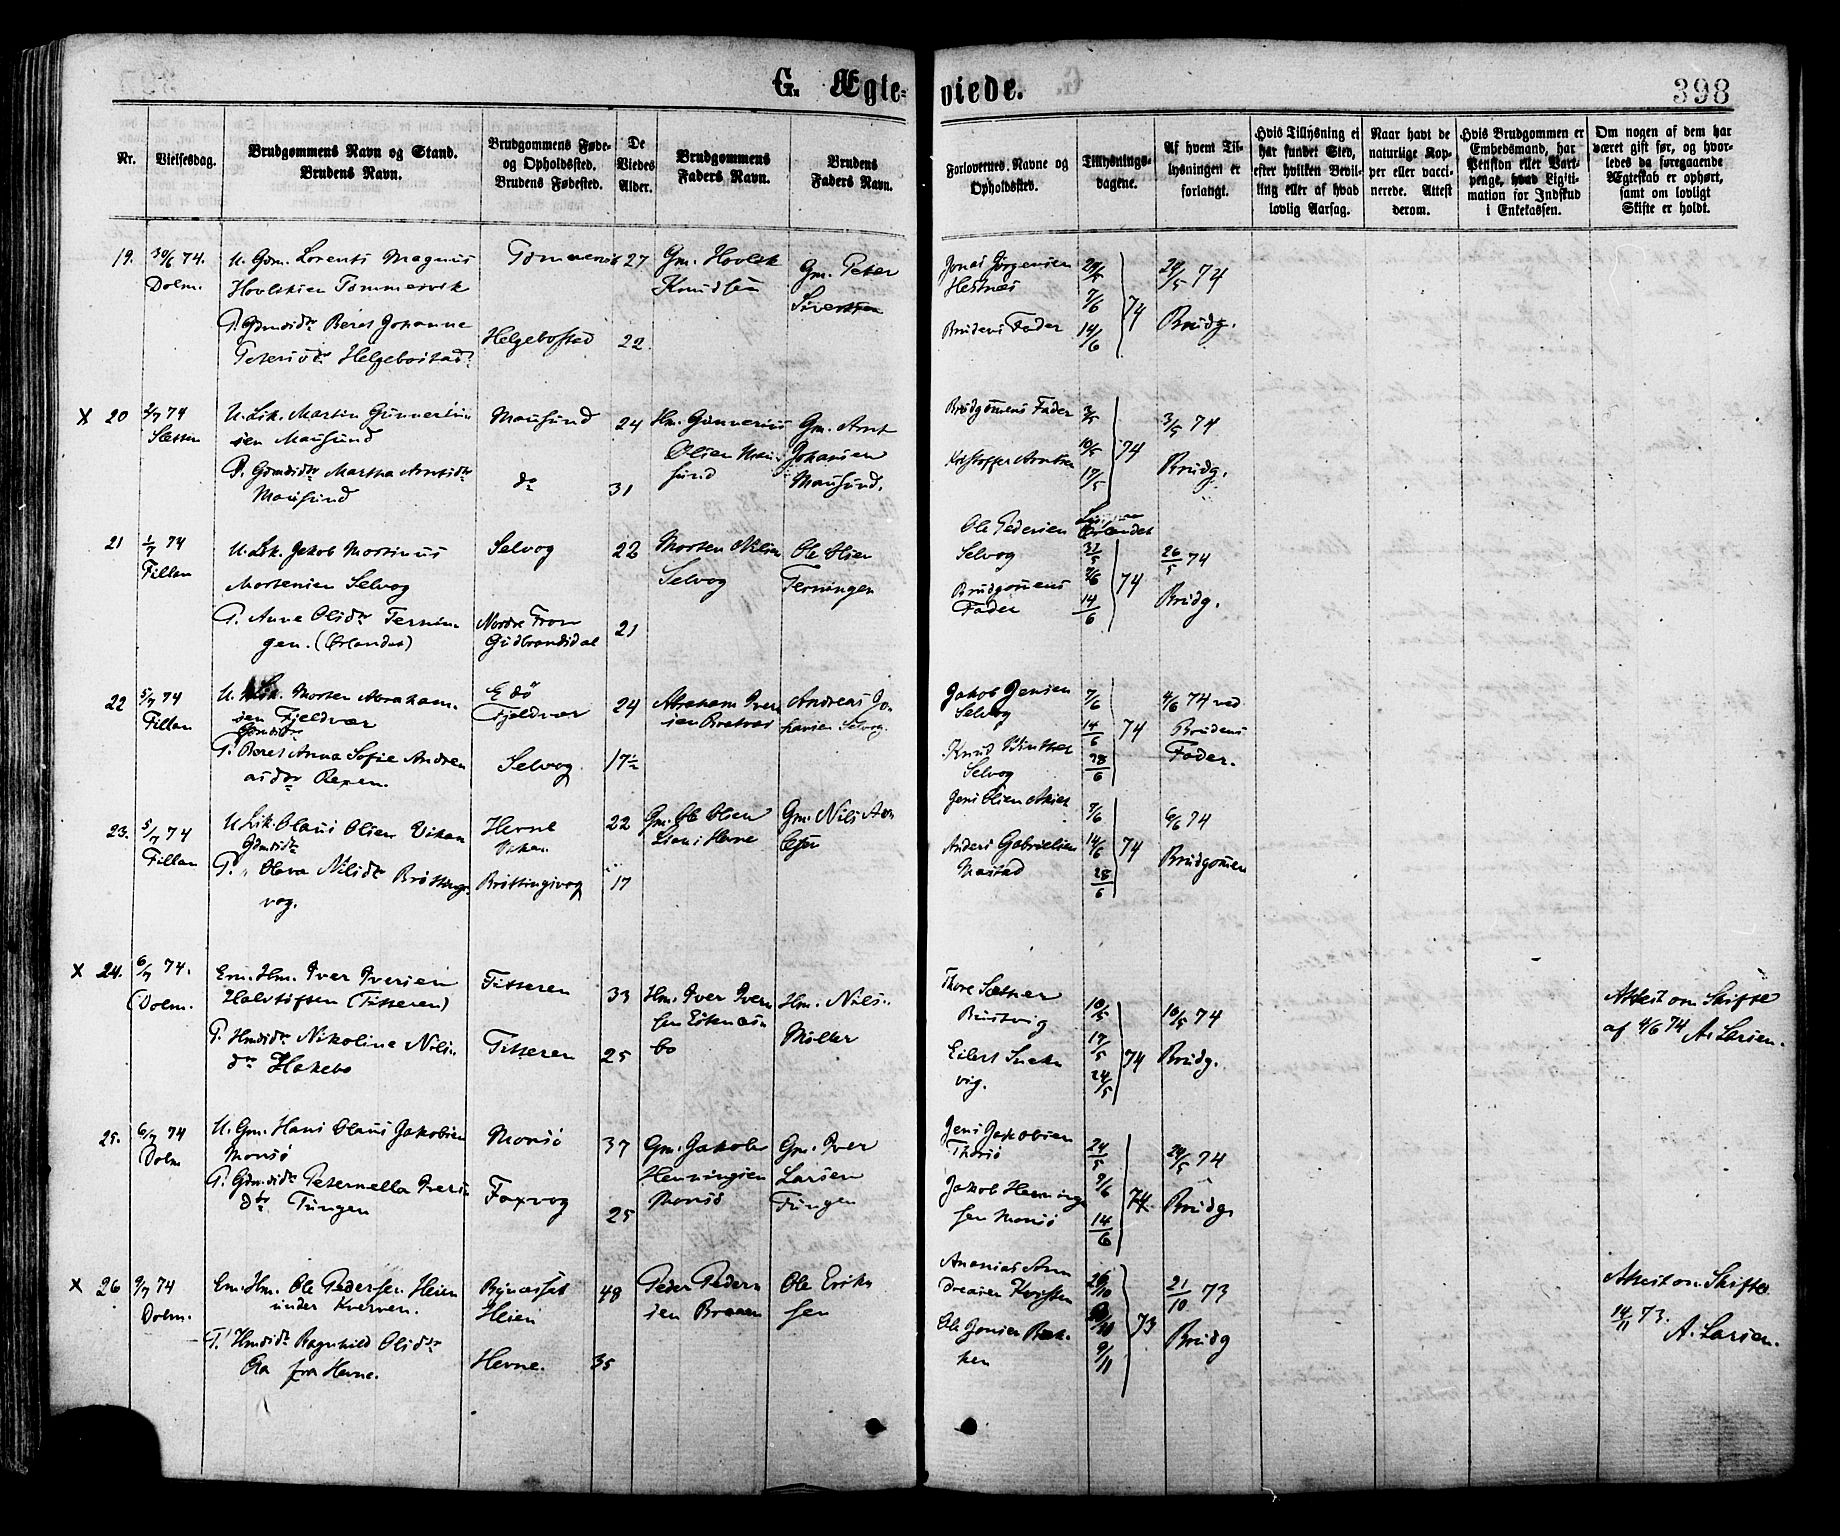 G. Ægte=
viede.
398
Nr.
Vielsesdag.
Brudgommens Navn og Stand.
Brudens Navn.
Brudgommens Føde-
og Opholdssted.
Brudens Fødested.
De
Viedes
Alder.
Brudgommens
Faders Navn.
Brudens
Faders Navn.
Forlovernes Navne og
Opholdssted.
Tillysnings-
dagene.
Af hvem Til-
lysningen er
forlangt.
Hvis Tillysning ei
har fundet Sted,
efter hvilken Bevil-
ling eller af hvad
lovlig Aarsag.
Naar havt de
naturlige Kop-
per eller vacci-
nerede. Attest
derom.
Hvis Brudgommen er
Embedsmand, har
Pension eller Vart-
penge, hvad Ligiti-
mation for Indskud
i Enkekassen.
Om nogen af dem har
været gift før, og hvor-
ledes da foregaaende
Ægteskab er ophørt,
samt om lovligt
Skifte er holdt.
19.
30/6 74.
Dolm.
U. Gdm. Lorents Magnus
Hovlsen Tømmervik
P. Gdmdtr Beret Johanne
Petersdtr Helgebostad
Tømmervik
Helgebostad
27
22
Gm. Hovlek
Knudsen
Gm. Peter
Sivertsen
Jonas Jørgensen
Hestnæs
Brudens Fader
7/6
14/6
74
29/5 74
Brudg.
x 20
2/7 74
U. Lsk. Martin Gunnerius
sen Mausund
P. Gdmdtr Martha Arntsdtr
Mausund
Mausund
do
24
31
Hm. Gunnerius
Olsen Mau-
sund
Gm. Arnt
Johansen
Mausund.
Brudgomens Fader
Kristoffer Arntsen
3/5
10/5
17/5
74
3/5 74
Brudg.
21
1/7 74
Fillan
U. Lsk. Jakob Martinus
Mortensen Selvog
P. Anne Olsdtr Ternin-
gen. (Ørlandet)
Selvog
Nordre Fron
Gudbrandsdal
22
21
Morten Nilsen
Selvog
Ole Olsen
Terningen
Ole Pedersen
Selvog
Brudgomens
Fader
Ørlandet
31/5
7/6
14/6
74
26/5 74
Brudg.
22
5/7 74
Fillan
U. Lsk. Morten Abraham-
sen Fjeldvær
Gdmdtr
P. Beret Anna Sofie Andrea
asdtr Rexen.
Edø
Fjeldvær
Selvog
24
17½
Abraham Iver
sen Bratvær
Andreas Jo-
hansen Selvog
Jakob Jensen
Selvog
Knud
Selvog
7/6
14/6
28/6
74
4/6 74 ved
Brudens
Fader.
23.
5/7 74
Fillan
U. Lsk. Olaus Olsen Vikan
Gdmdtr
P. Olava Nilsdtr Brøttings-
vog.
Hevne
Vikan
Brøttingsvog
22
17
Gm. Ole Olsen
Lian i Hevne
Gm. Nils
Jens Olsen
Anders Gabrielsen
Nastad
7/6
14/6
28/6
74
6/6 74
Brudgomen
x 24.
6/7 74.
(Dolm.
Em. Hm. Iver Iversen
Halvtoften (Titteren)
P. Hmdtr Nikoline Nils-
dtr Hakebo
Titteren
Titteren
33
25
Hm. Iver Iver
sen
bo
Hm. Nils
Møller
Thore Sætner
Eilert
vig.
10/5
17/5
24/5
74
10/5 74
Brudg.
Attest om Skifte
af 4/6 74 A. Larsen.
25.
6/7 74
Dolm
U. Gm. Hans Olaus Jakobsen
Morsø
P. Gdmdtr Peternella Ivers
dtr Tungen
Morsø
Faxvog
37
25
Gm. Jakob
Henningsen
Morsø
Gm. Iver
Larsen
Tungen
Jens Jakobsen
Jakob Henning-
sen Morsø
24/5
14/6
74
24/5 74
Brudg.
x 26
9/7 74
Dolm.
Em. Hm. Ole Pedersen Heien
under Kverven.
P. Hmdtr Ragnhild Olsdtr
fra Hevne.
Bynesset
Heien
Hevne.
48
35
Peder Peder
sen Braaen
Ole Erik-
sen
Ananias An
dreasen Kvisten
Ole Jonsen Bak-
ken
26/10
9/11
73
21/10 73
Brudg
Attest om Skifte
14/11 73.
A. Larsen.